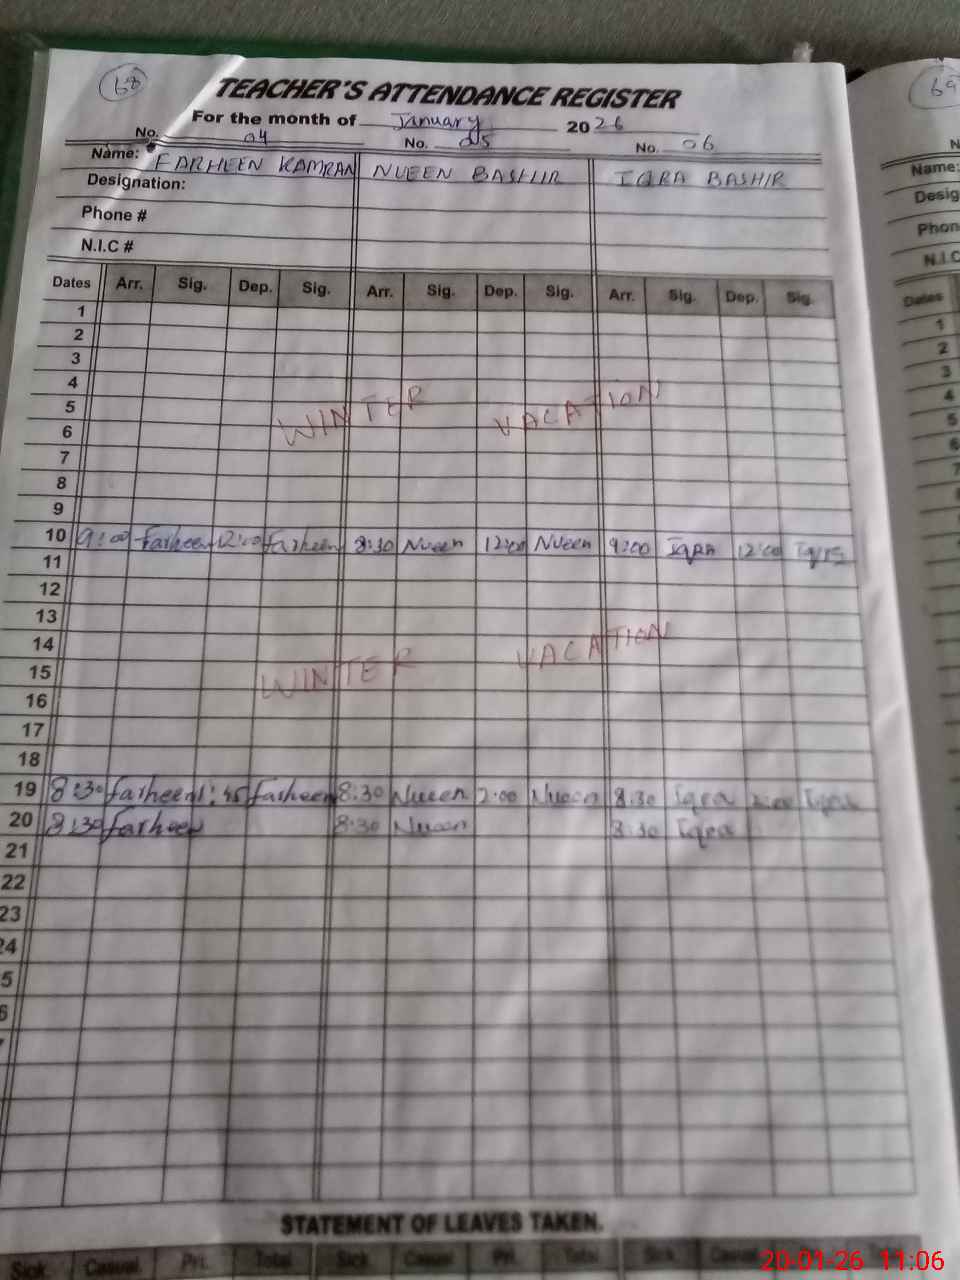 68
TEACHER'S ATTENDANCE REGISTER
For the month of January 2026
No. 04 No. 05 No. 06
Name: FARHEEN KAMRAN NUEEN BASHIR IQRA BASHIR
Designation:
Phone #
N.I.C #
Dates Arr. Sig. Dep. Sig. Arr. Sig. Dep. Sig. Arr. Sig. Dep. Sig.
1
2
3
4
5
WINTER VACATION
6
7
8
9
10 9:00 Farheen 12:00 Farheen 8:30 Nueen 12:00 Nueen 9:00 Iqra 12:00 Iqra
11
12
13
14
15
WINTER VACATION
16
17
18
19 8:30 Farheen 1:45 Farheen 8:30 Nueen 2:00 Nueen 8:30 Iqra 2:00 Iqra
20 8:30 Farheen 8:30 Nueen 8:30 Iqra
21
22
23
24
5
6
STATEMENT OF LEAVES TAKEN.
Sick. Casual. Pri. Total Sick. Casual Pri. Total Sick.
69
Name:
Desig
Phon
N.I.C
Dates
1
2
3
4
5
6
7
20-01-26 11:06